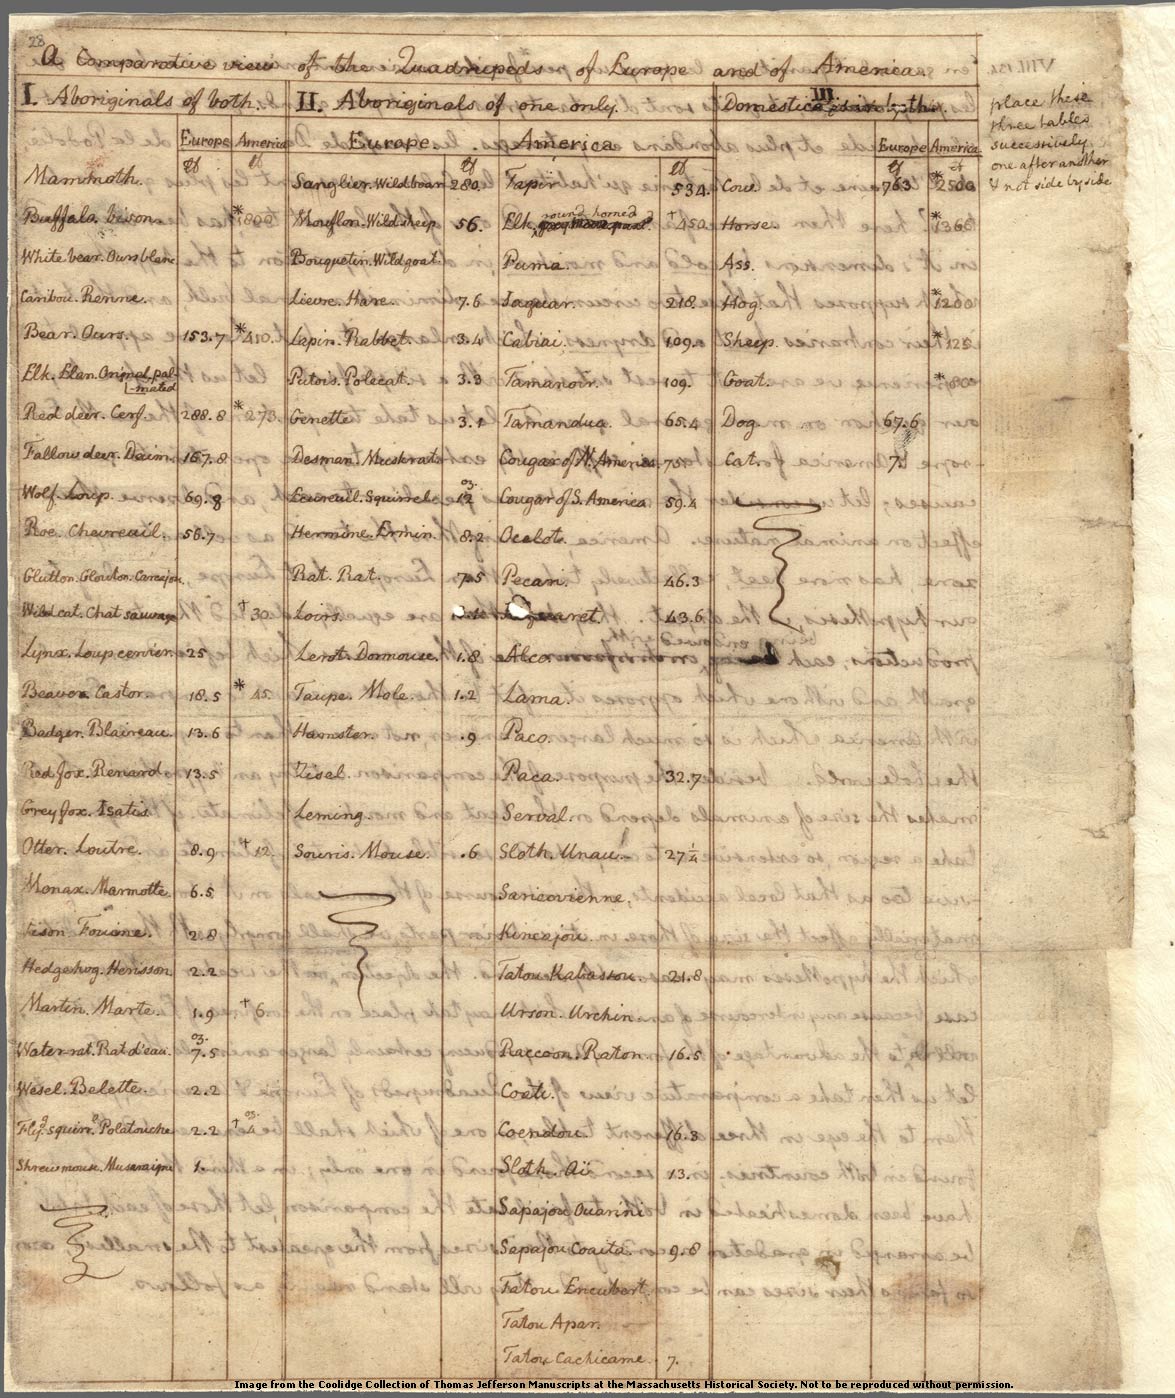 28
A Comparative view of the Quadrupeds of Europe and of America.
I. Aboriginals of both.
Europe America
lb lb
Mammoth.
Buffalo. bison *1800
White bear. Ours blanc
Caribou. Renne.
Bear. Ours. 153.7 *410
Elk. Elan. Orignal pal-
mated
Red deer. Cerf. 288.8 *273
Fallow deer. Daim 167.8
Wolf. Loup. 69.8
Roe. Chevreuil. 56.7
Glutton. Glouton. Carcajou
Wild cat. Chat sauvage †30
Lynx. Loup cervier. 25
Beaver. Castor 18.5 *45
Badger. Blaireau. 13.6
Red fox. Renard 13.5
Grey fox. Isatis
Otter. Loutre. 8.9 †12
Monax. Marmotte. 6.5
Vison. Fouine. 2.8
Hedgehog. Herisson 2.2
Martin. Marte. 1.9 †6
oz.
Water rat. Rat d'eau. 7.5
Wesel. Belette. 2.2 oz.
Flyg. squirr. Polatouche 2.2 †4
Shrew mouse. Musaraigne 1.
II. Aboriginals of one only.
Europe
lb
Sanglier. Wild boar 280.
Mouflon. Wild sheep 56.
Bouquetin. Wild goat
Lievre. Hare. 7.6
Lapin. Rabbet. 3.4
Putois. Polecat. 3.3
Genette 3.1
Desman. Muskrat
oz.
Ecureuil. Squirrel 12
Hermine. Ermin. 8.2
Rat. Rat. 7.5
Loirs.
Lerot. Dormouse. 1.8
Taupe. Mole. 1.2
Hamster. .9
Zisel.
Leming.
Souris. Mouse. .6
America
lb
Tapir 534.
round horned
Elk, †450
Puma.
Jaguar. 218.
Cabiai. 109.
Tamanoir. 109.
Tamandua. 65.4
Cougar of N. America. 75.
Cougar of S. America 59.4
Ocelot.
Pecari. 46.3
43.6
Alco
Lama.
Paco.
Paca. 32.7
Serval.
Sloth. Unau. 27 1/4
Saricovienne.
Kincajou.
Tatou Kabassou. 21.8
Urson. Urchin
Raccoon. Raton. 16.5
Coati.
Coendou. 16.3
Sloth. Aï 13.
Sapajou Ouarini
Sapajou Coaita. 9.8
Tatou Encubert
Tatou Apar.
Tatou Cachicame. 7.
III.
Domesticated in both.
Europe America
lb lb
Cow 763. *2500
Horse *1366
Ass.
Hog. *1200
Sheep. *125
Goat. *80
Dog 67.6
Cat. 7.
VIII.
place these
three tables
successively
one after another
& not side by side
Image from the Coolidge Collection of Thomas Jefferson Manuscripts at the Massachusetts Historical Society. Not to be reproduced without permission.